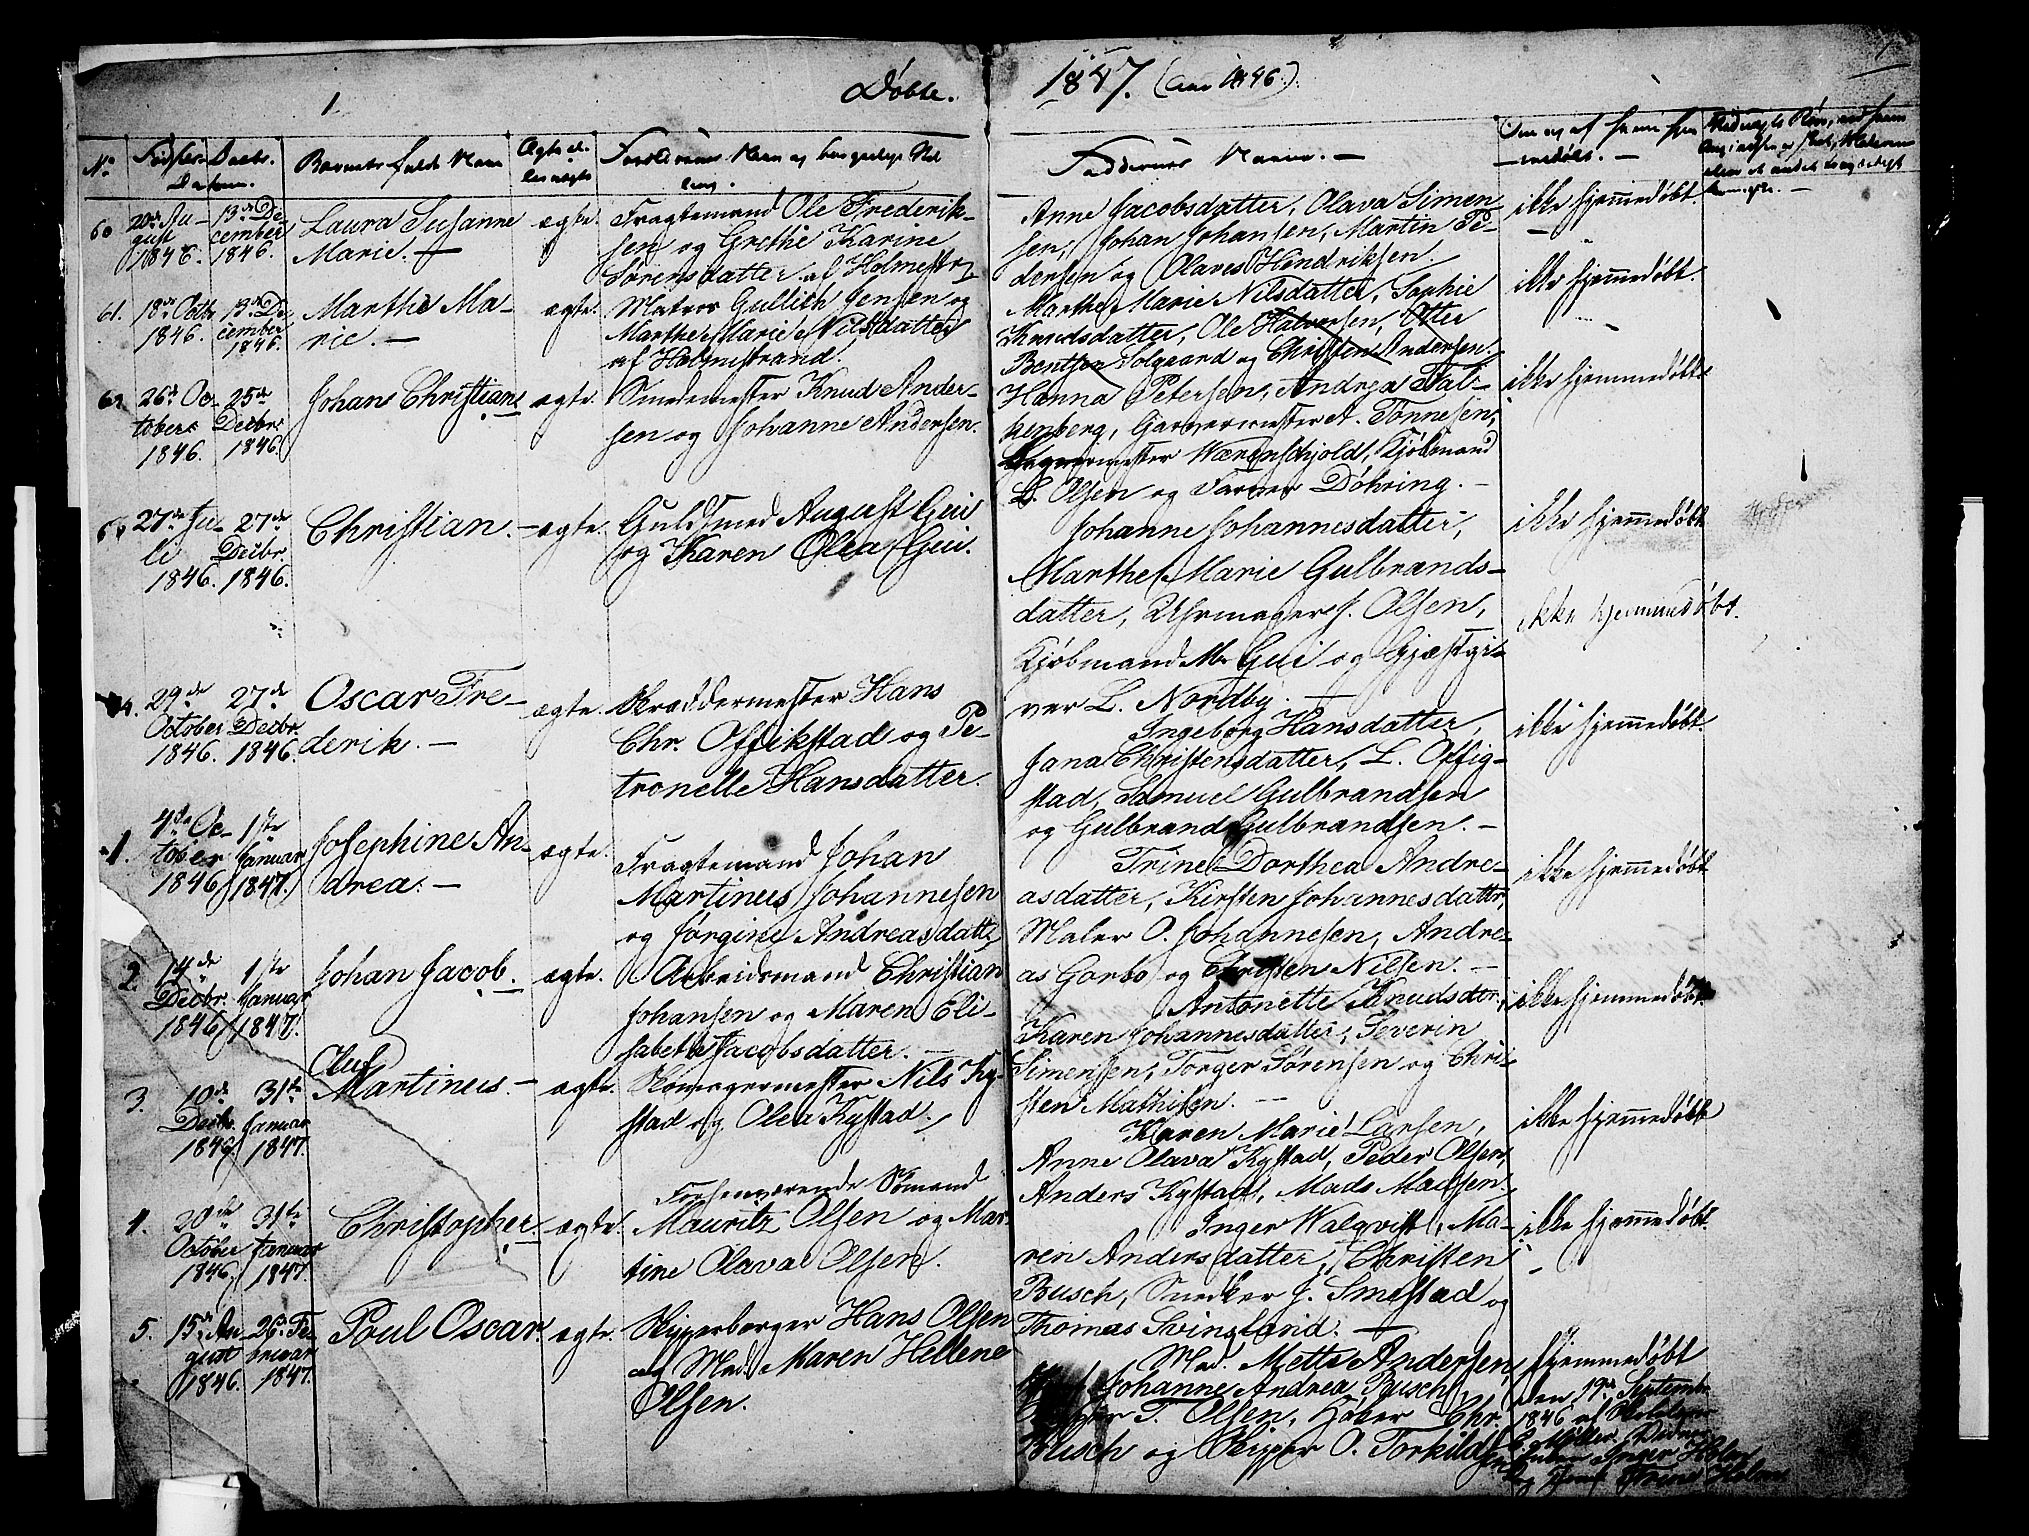 1
Døbte.
1847. (Anno 1846).
No
Fødsels- Daabs-
Datum.
Barnets fulde Navn
Ægte el. uægte
Forældrenes Navn og borgerlige Stilling.
Faddernes Navne. —
60
20de August 1846.
13de December 1846.
Laura Susanne
Marie. —
ægte.
Fragtemand Ole Frederik-
sen og Grethe Karine
Sørensdatter af Holmestr.
Anne Jacobsdatter, Olava Simen-
sen, Johan Johansen, Martin Pe-
dersen og Olaves Hendriksen.
ikke hjemmedøbt.
61.
18de Octbr 1846.
13de December 1846.
Marthe Ma-
rie. —
ægte.
Matros Gullich Jensen og
Marthe Marie Nilsdatter
af Holmestrand.
Marthe Marie Nilsdatter, Sophie
Knudsdatter, Ole Halvorsen, Otter
Bentsen Solgaard og Christen Andersen.
ikke hjemmedøbt.
26de Octobers 1846.
25de Decbr 1846.
Johan Christian
ægte.
Smedemester Knud Ander-
sen og Johanne Andersen.
Hanna Petersen, Andrea Fal-
kenberg, Garvermester A. Tønnesen,
Wærenschjold, Kjøbmand
L. Olsen og Farver Døhring. —
ikke hjemmedøbt.
27de Juli 1846.
27de Decbr. 1846.
Christian. —
ægte.
Guldsmed August Gui
og Karen Olea Gui.
Johanne Johannesdatter,
Marthe Marie Gulbrands-
datter, Uhrmager J. Olsen,
Kjøbmand M. Gui og Gjæstgi-
ver L. Nordby. —
ikke hjemmedøbt.
ikke hjemmedøbt.
29de October 1846.
27de Decbr. 1846.
Oscar Fre-
derik. —
ægte.
Skræddermester Hans
Chr. Offikstad og Pe-
tronelle Hansdatter.
Ingeborg Hansdatter,
Jana Christensdatter, L. Offig-
stad, Samuel Gulbrandsen
og Gulbrand Gulbrandsen. —
ikke hjemmedøbt.
1.
4de October 1846.
1ste Januar 1847.
Josephine An-
drea. —
ægte.
Fragtemand Johan
Martinus Johannesen
og Jørgine Andreasdatt.
Trine Dorthea Andre-
asdatter, Kirsten Johannesdatter,
Maler O. Johannesen, Andre-
as Garbo og Christen Nilsen. —
ikke hjemmedøbt
2.
14de Decbr. 1846.
1ste Januar 1847.
Johan Jacob.
ægte.
Arbeidsmand Christian
Johansen og Maren Eli-
sabeth Jacobsdatter. —
Antonette Knudsdtr.,
Karen Johannesdatter, Severin
Simensen, Torger Sørensen og Chri-
sten Mathisen. —
ikke hjemmedøbt
3.
10de Decbr. 1846.
31te Januar 1847.
Oluf
Martinus —
ægte.
Skomagermester Nils Ky-
stad og Olea Kystad.
Karen Marie Larsen,
Anne Olava Kystad, Peder Olsen,
Anders Kystad, Mads Madsen.
ikke hjemmedøbt
4.
20de October 1846.
31te Januar 1847.
Christopher.
ægte.
Forhenværende Sømand
Mauritz Olsen og Mar-
tine Olava Olsen.
Inger Walqvist, Ma-
ren Andersdatter, Christen
Busch, Snedker J. Smestad og
Thomas Svingland. —
ikke hjemmedøbt.
5.
15de August 1846.
26de Februar 1847.
Poul Oscar.
ægte.
Skipperborger Hans Olsen
og Mad. Maren Hellene
Olsen.
Mad. Mette Andersen,
Johanne Andrea Busch,
T. Olsen, Høker Chr.
Busch og Skipper O. Torkildsen
hjemmedøbt
den 19de Septembr
1846 af
Møller.
Inger Holm
og Holm